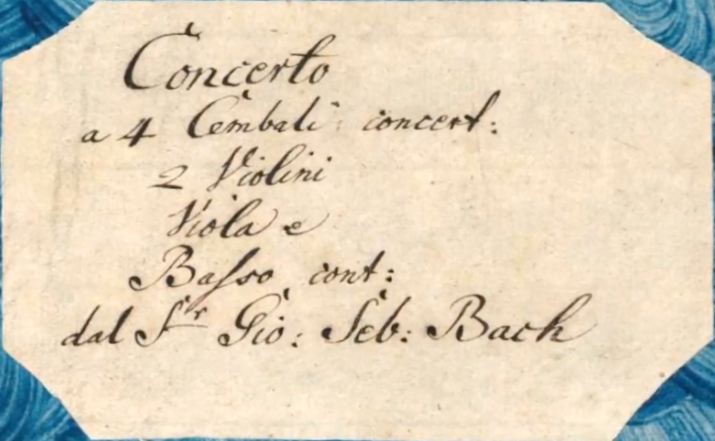 Concerto
a 4 Cembali concert:
2 Violini
Viola e
Baſso cont:
dal Sr Gio: Seb: Bach